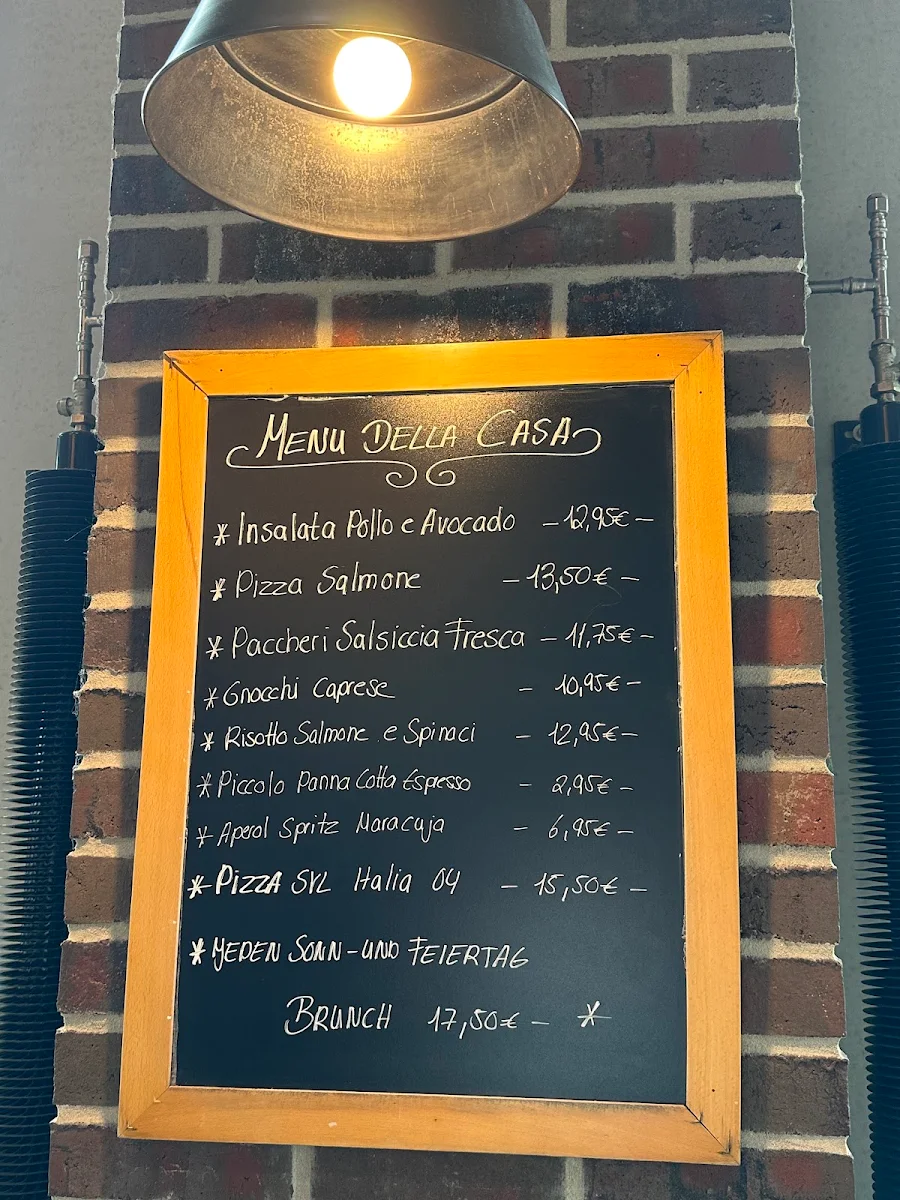 Menu Della Casa
* Insalata Pollo e Avocado – 12,95€ –
* Pizza Salmone – 13,50€ –
* Paccheri Salsiccia Fresca – 11,75€ –
* Gnocchi Caprese – 10,95€ –
* Risotto Salmone e Spinaci – 12,95€ –
* Piccolo Panna Cotta Espresso – 2,95€ –
* Aperol Spritz Maracuja – 6,95€ –
* Pizza SYL Italia 04 – 15,50€ –
* JEDEN SONN-UND FEIERTAG
BRUNCH 17,50€ – *